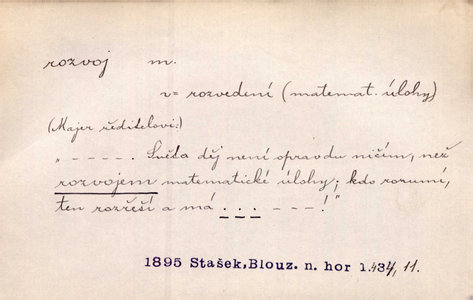 rozvoj m.
v= rozvedení (matemat. úlohy)
(Majer řediteloviː)
„ - - - - . Světa děj není opravdu ničím, než
rozvojem matematické úlohy; kdo rozumí,
ten rozřeší a má . . . - - - !"
1895 Stašek, Blouz. n. hor 1.434, 11.